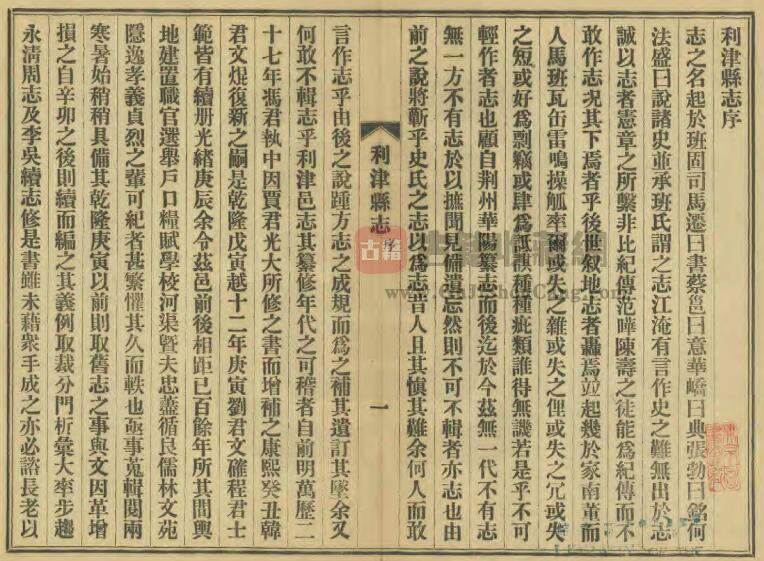 利津縣志序
志之名起於班固司馬遷曰書蔡邕曰意華嶠曰典張勃曰銘何
法盛曰說諸史並承班氏謂之志江淹有言作史之難無出於志
誠以志者憲章之所繫非比紀傳范曄陳壽之徒能爲紀傳而不
敢作志况其下焉者乎後世叙地志者轟焉竝起幾於家南董而
人馬班瓦缶雷鳴操觚率爾或失之雜或失之俚或失之冗或失
之短或好爲剽竊或肆爲詆諆種種疵類誰得無譏若是乎不可
輕作者志也顧自荆州華陽纂志而後迄於今茲無一代不有志
無一方不有志於以摭聞見備遺忘然則不可不輯者亦志也由
前之說將蘄乎史氏之志以爲志昔人且其愼其難余何人而敢
利津縣志
序
一
言作志乎由後之說踵方志之成規而爲之補其遺訂其墜余又
何敢不輯志乎利津邑志其纂修年代之可稽者自前明萬歷二
十七年馮君執中因賈君光大所修之書而增補之康熙癸丑韓
君文焜復新之嗣是乾隆戊寅越十二年庚寅劉君文確程君士
範皆有續册光緒庚辰余令茲邑前後相距已百餘年所其間輿
地建置職官選舉戶口糧賦學校河渠曁夫忠藎循良儒林文苑
隱逸孝義貞烈之輩可紀者甚繁懼其久而軼也亟事蒐輯閱兩
寒暑始稍稍具備其乾隆庚寅以前則取舊志之事與文因革增
損之自辛卯之後則續而編之其義例取裁分門析彙大率步趨
永淸周志及李吳續志修是書雖未藉衆手成之亦必諮長老以
古籍